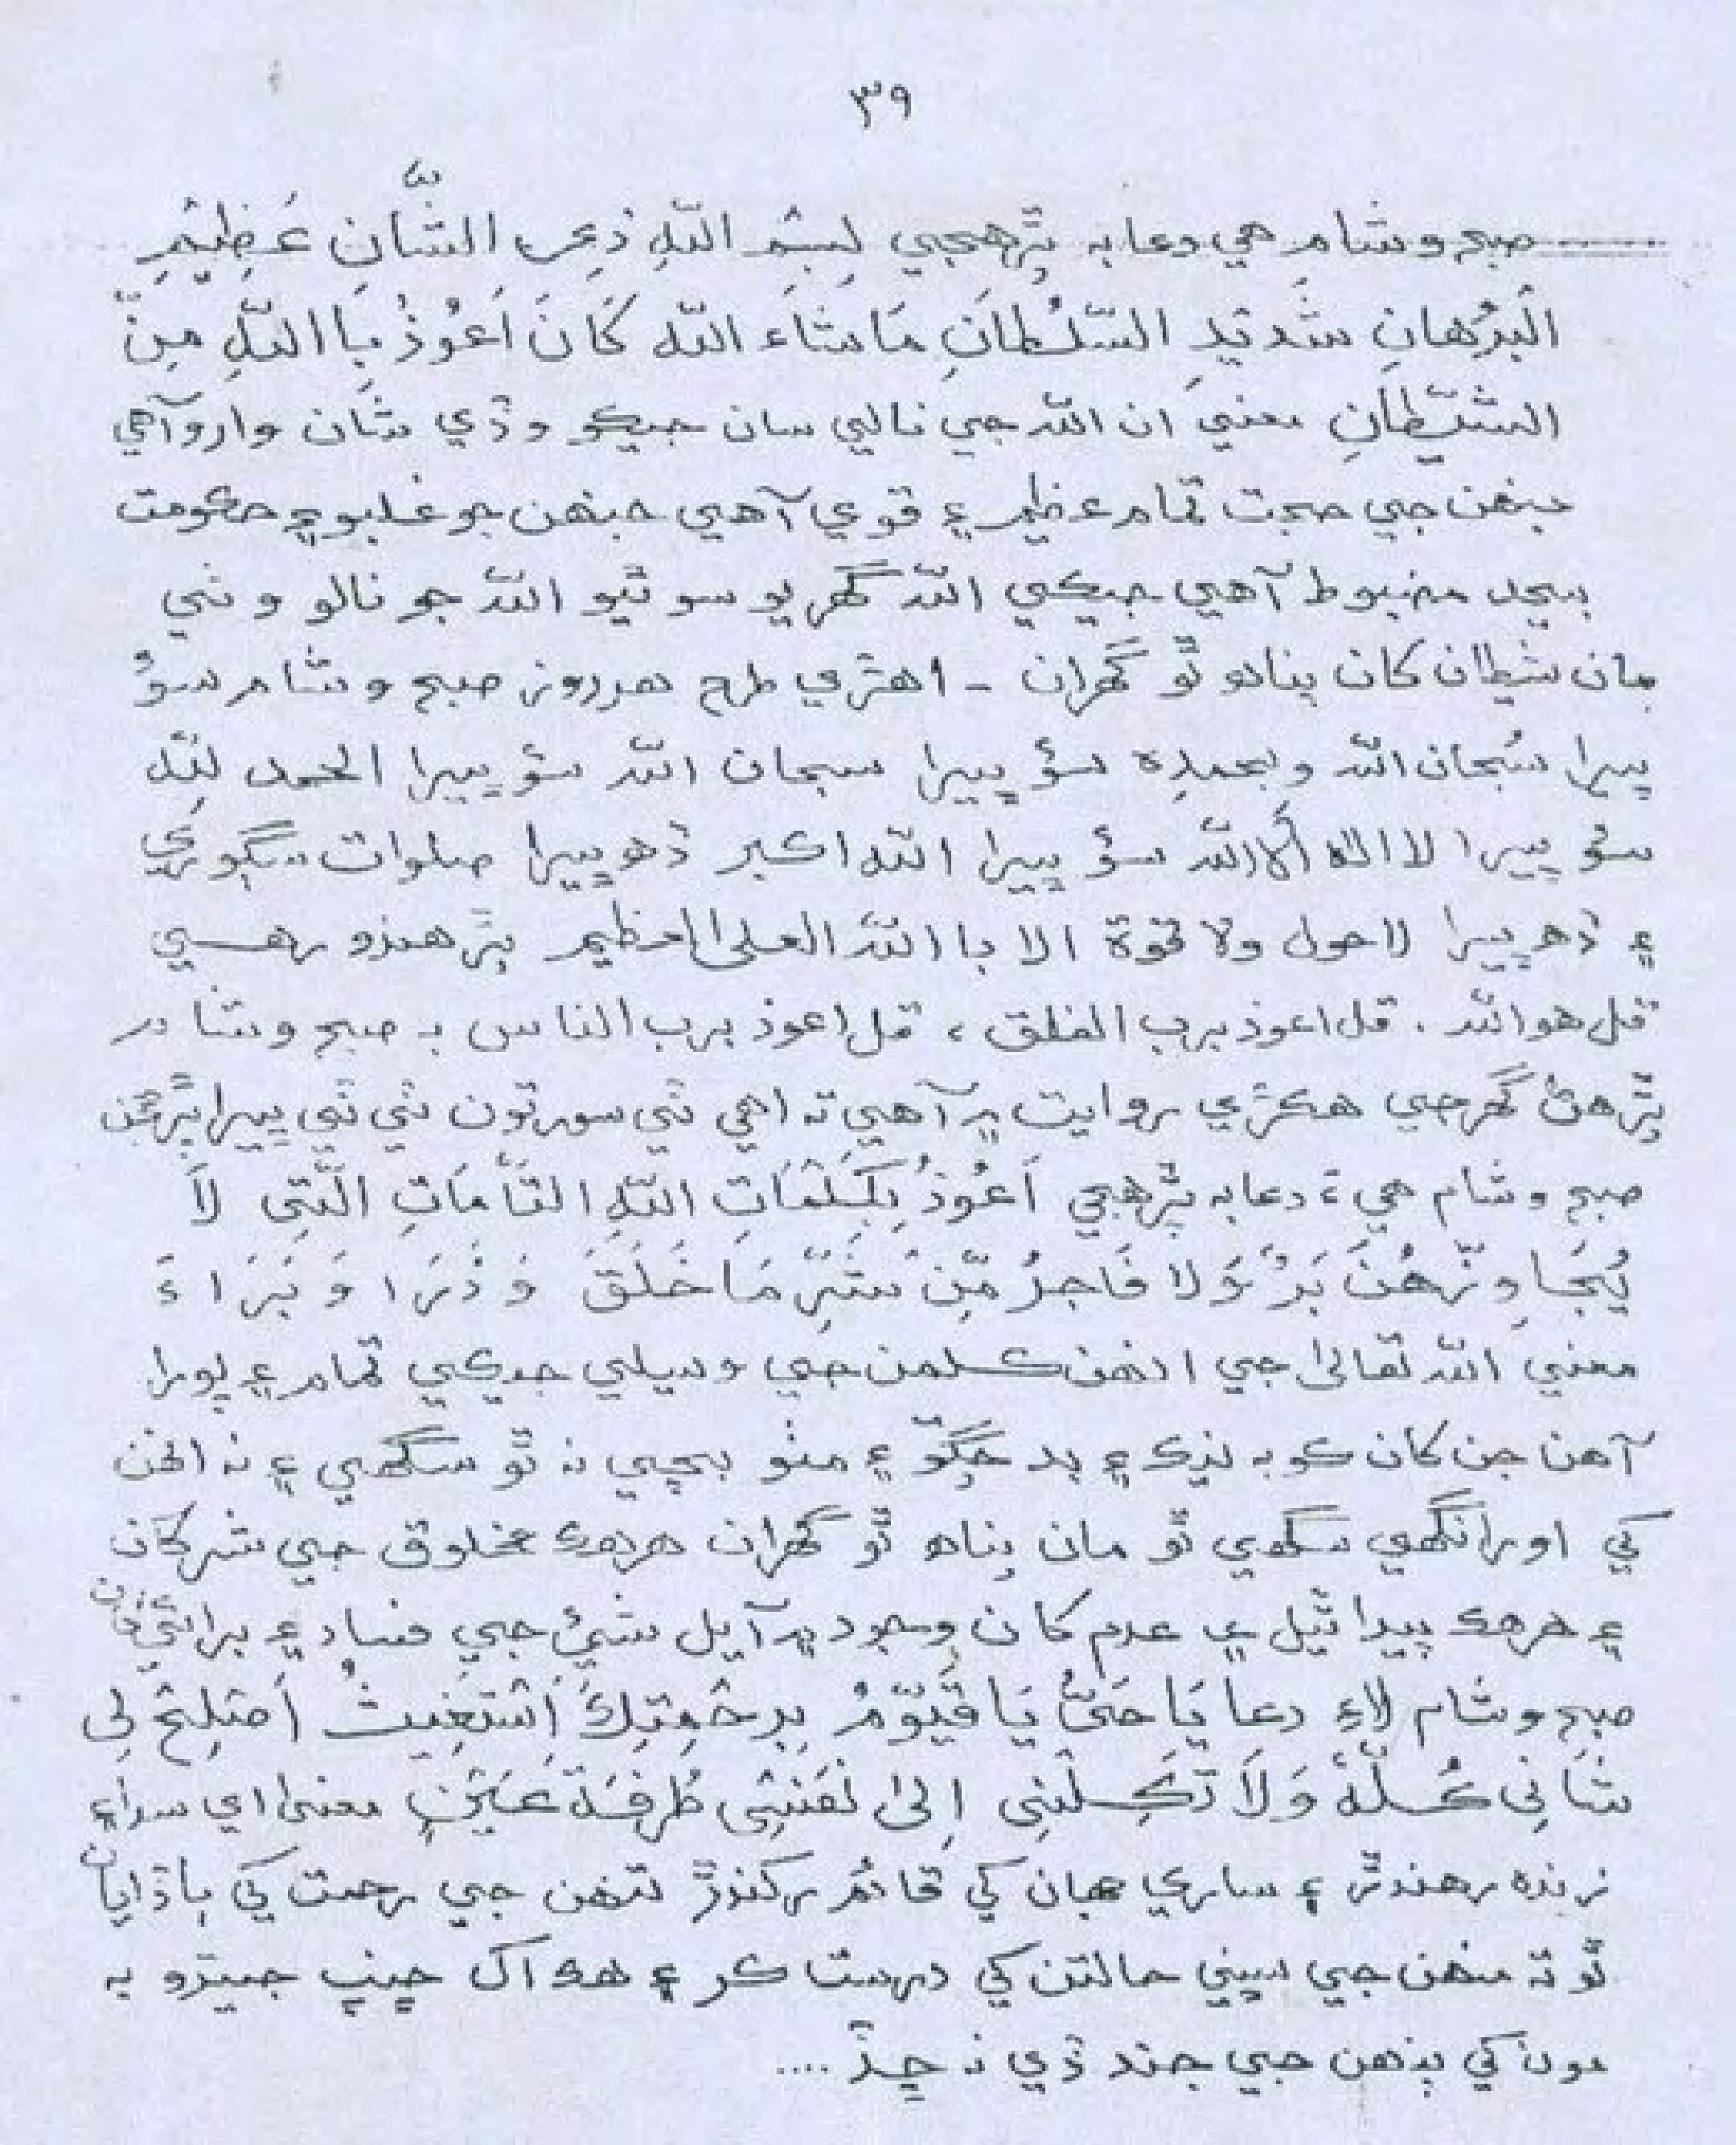 ٣٩
صبح و شام هي دعا به پڙهجي بِسْمِ اللّٰهِ ذِي الشَّانِ عَظِيْمِ
الْبُرْهَانِ شَدِيْدِ السُّلْطَانِ مَا شَاءَ اللّٰه كَانَ اَعُوْذُ بِا اللّٰهِ مِنَ
الشَّيْطَانِ معنيٰ ان اللّٰه جي نالي سان جيڪو وڏي شان وارو آهي
جنهن جي حجت تمام عظيم ۽ قوي آهي جنهن جو غلبو ۽ حڪومت
بيحد مضبوط آهي جيڪي اللّٰه گهريو سو ٿيو اللّٰه جو نالو وٺي
مان شيطان کان پناهه ٿو گهران ـ اهڙي طرح هرروز صبح و شام سؤ
ڀيرا سُبحان اللّٰه وبحمدِه سؤ ڀيرا سبحان اللّٰه سؤ ڀيرا الحمد لِلّٰه
سؤ ڀيرا لا الٰه الا اللّٰه سؤ ڀيرا اللّٰه اڪبر ڏهه ڀيرا صلوات
۽ ڏهه ڀيرا لاحول ولا قوة الا با اللّٰه العلی العظيم پڙهندو رهي
قل هو اللّٰه . قل اعوذ برب الفلق ، قل اعوذ برب الناس به صبح و شام
پڙهڻ گهرجي هڪڙي روايت ۾ آهي ته اهي ٽي سورتون ٽي ٽي ڀيرا پڙهجن
صبح و شام هي دعا به پڙهجي اَعُوْذُ بِکَلِمَاتِ اللّٰهِ التَّآمَاتِ الَّتِی لاَ
يُجَاوِزُهُنَّ بَرٌّ وَلا فَاجِرٌ مِّنْ شَرِّ مَا خَلَقَ وَ ذَرَا وَ بَرَاءَ
معنيٰ اللّٰه تعالیٰ جي انهن ڪلمن جي وسيلي جيڪي تمام ۽ پورا
آهن جن کان ڪو به نيڪ ۽ بد چڱو ۽ مٺو بچي نه ٿو سگهي ۽ نه انهن
کي اورانگهي سگهي ٿو مان پناهه ٿو گهران هرهڪ مخلوق جي شر کان
۽ هرهڪ پيدا ٿيل ۽ عدم کان وجود ۾ آيل شيءِ جي فساد ۽ برائي کان
صبح و شام لاءِ دعا يَا حَیُّ يَا قَيُّوْمُ بِرَحْمَتِكَ اَسْتَغِيثُ اَصْلِحْ لِی
شَانِی ڪُلَّهُ وَلاَ تَکِلْنِی اِلیٰ نَفْسِی طُرْفَةَ عَيْنٍ معنیٰ اي سداءِ
زنده رهندڙ ۽ ساري جهان کي قائم رکندڙ تنهن جي رحمت کي ٻاڏايان
ٿو ته منهن جي سڀني حالتن کي درست ڪر ۽ هڪ اک ڇنڀ جيترو به
مون کي پنهن جي جند ڏي نه ڇڏ ....